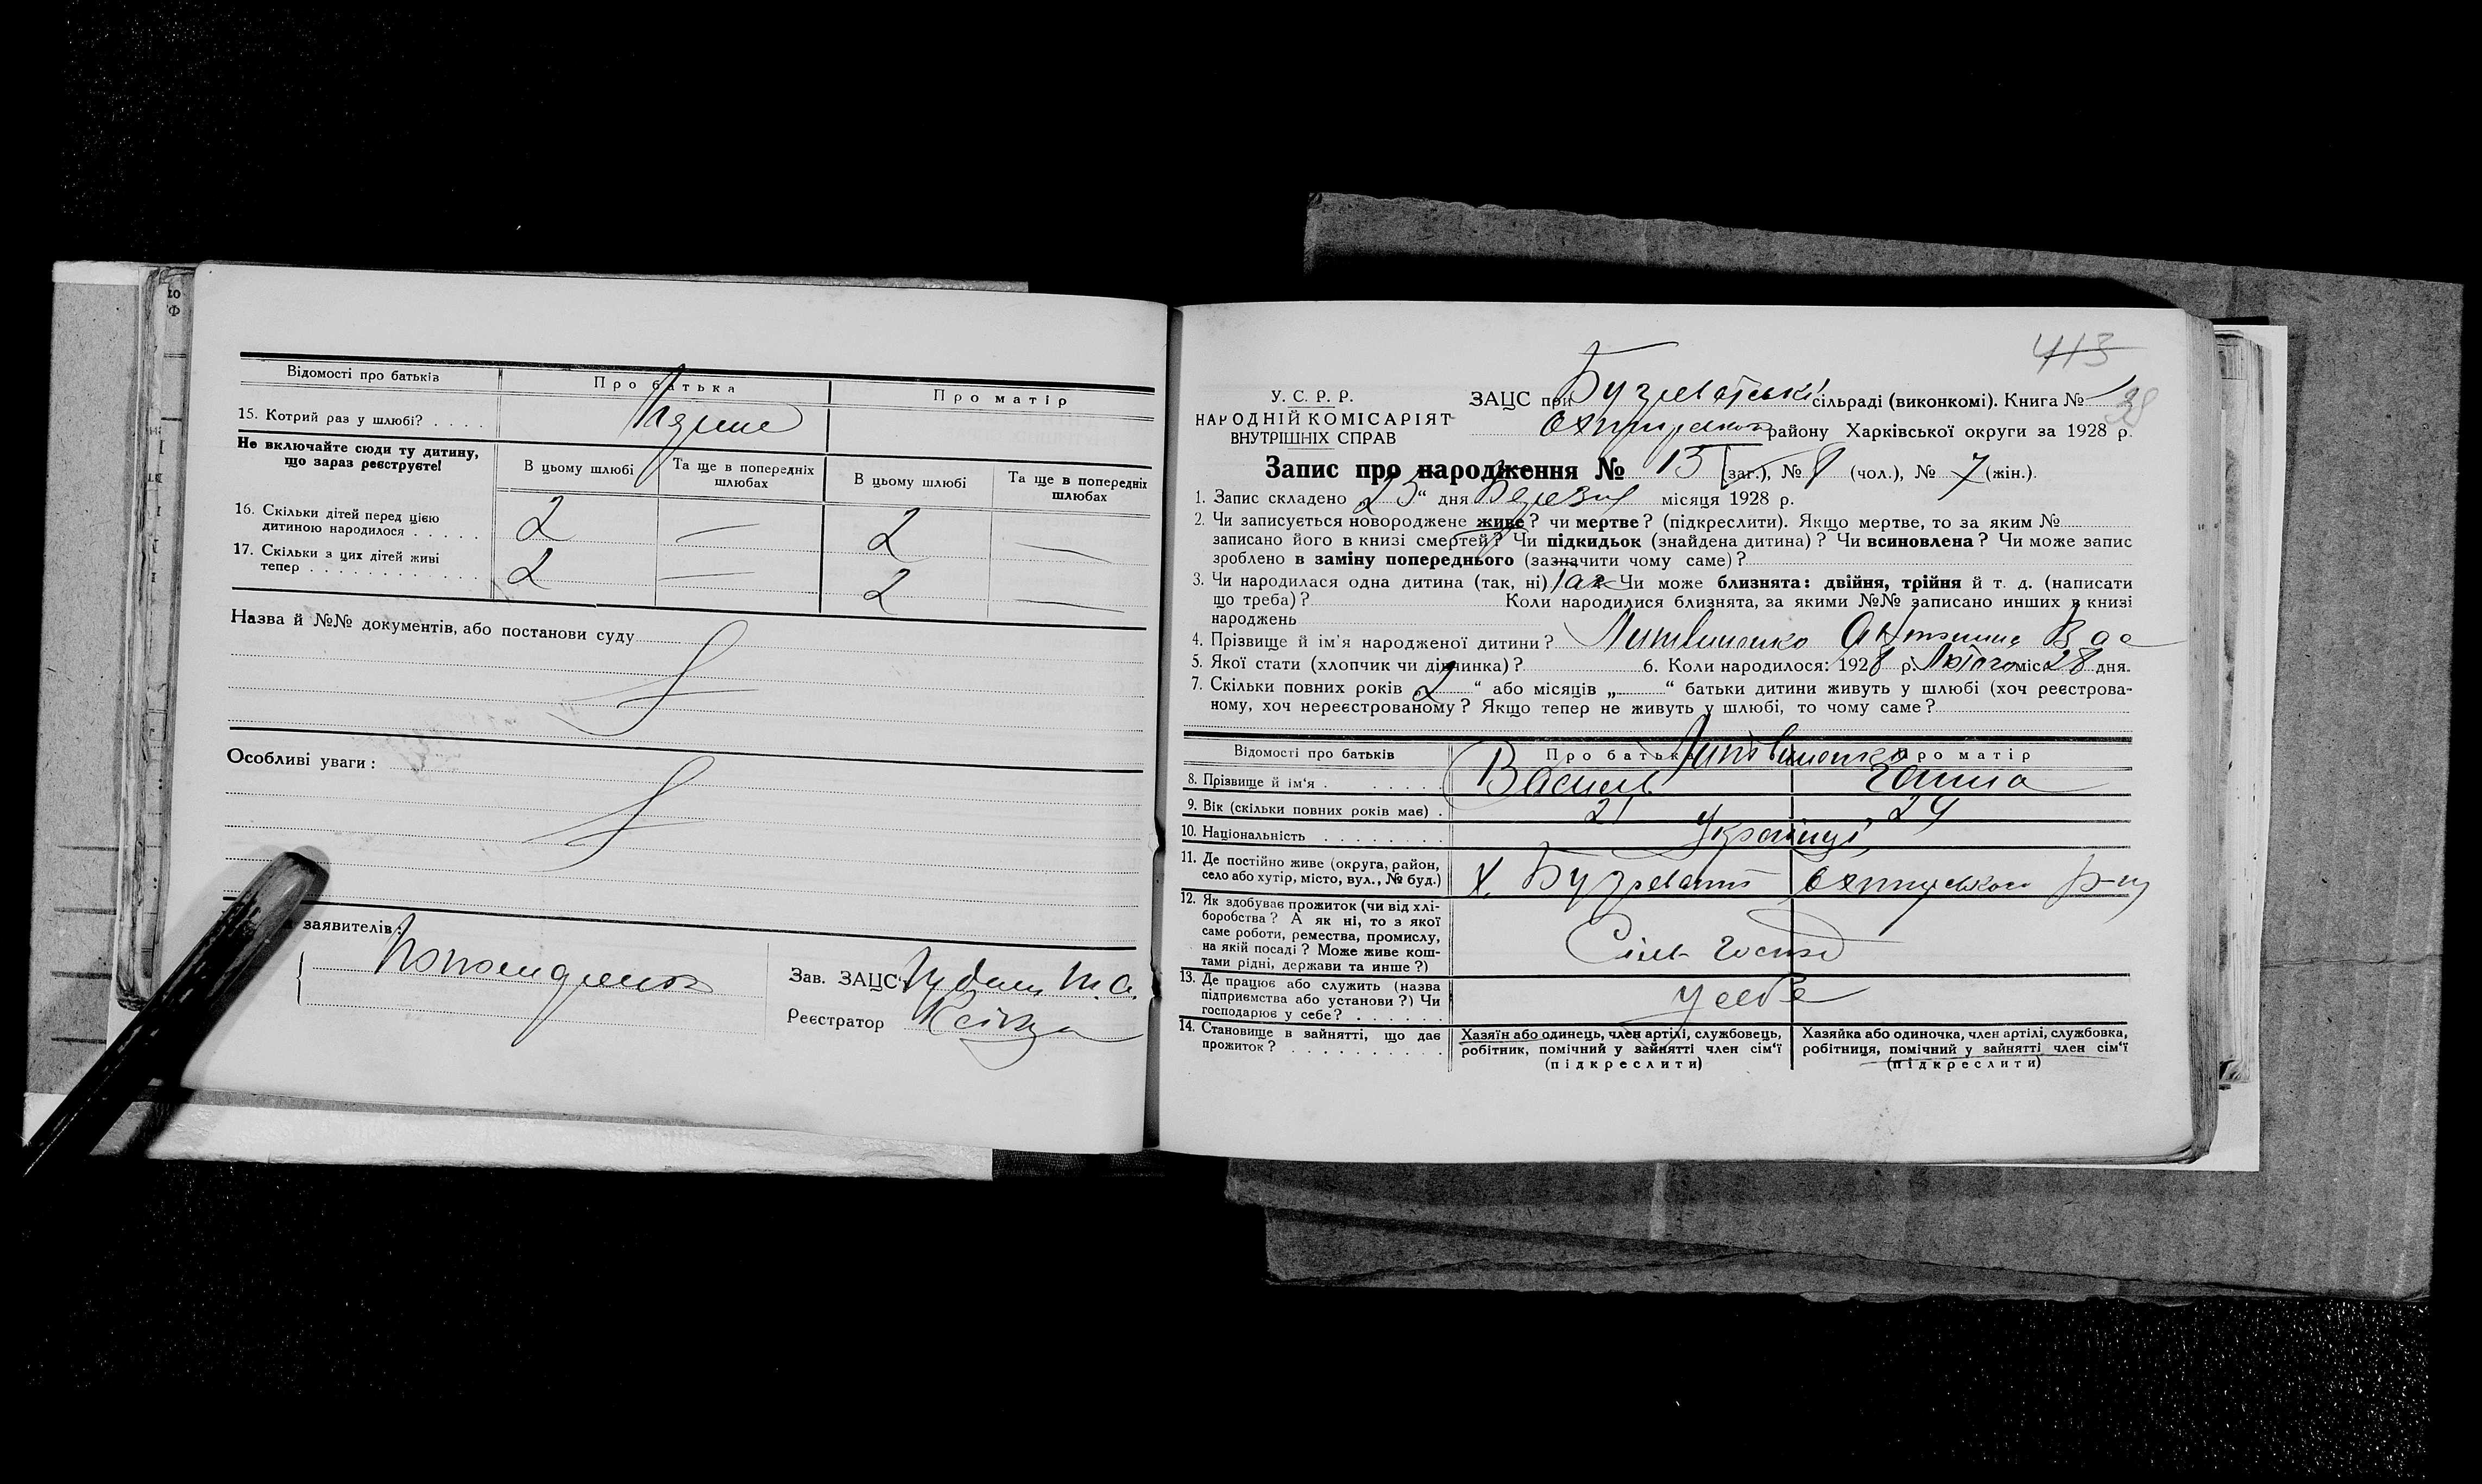 ю
Ф
Відомості про батьків
Про батька
Про матір
15. Котрий раз у шлюбі? . . . .
Перше
Не включайте сюди ту дитину,
що зараз реєструєте!
В цьому шлюбі
Та ще в попередніх
шлюбах
В цьому шлюбі
Та ще в попередніх
шлюбах
16. Скільки дітей перед цією
дитиною народилося . . . . .
2 — 2 —
17. Скільки з цих дітей живі
тепер . . . . . . . . . . . .
2 — 2 —
Назва й №№ документів, або постанови суду
Особливі уваги :
заявителів :
Зав. ЗАЦС
Реєстратор
413
38
У. С. Р. Р.
НАРОДНІЙ КОМІСАРІЯТ
ВНУТРІШНІХ СПРАВ
ЗАЦС при сільраді (виконкомі). Книга №
району Харківської округи за 1928 р.
Запис про народження № 15 [заг.), № 8 (чол.), № 7 (жін.).
1. Запис складено „25“ дня Березня місяця 1928 р.
2. Чи записується новороджене живе? чи мертве? (підкреслити). Якщо мертве, то за яким №
записано його в книзі смертей? Чи підкидьок (знайдена дитина)? Чи всиновлена? Чи може запис
зроблено в заміну попереднього (зазначити чому саме)?
3. Чи народилася одна дитина (так, ні) Так Чи може близнята: двійня, трійня й т. д. (написати
що треба)? Коли народилися близнята, за якими №№ записано инших в книзі
народжень
4. Прізвище й ім'я народженої дитини? Литвиненко Антонина Вас
5. Якої стати (хлопчик чи дівчинка)? 6. Коли народилося: 1928 р. Лютого міс 28 дня.
7. Скільки повних років „2“ або місяців „ “ батьки дитини живуть у шлюбі (хоч реєстрова-
ному, хоч нереєстрованому? Якщо тепер не живуть у шлюбі, то чому саме?
Відомості про батьків
Про батька
Про матір
Литвиненко
8. Прізвище й ім'я . . . . . . .
Василь
Ганна
9. Вік (скільки повних років має) .
21
24
10. Національність . . . . . . . .
Українці
11. Де постійно живе (округа, район,
село або хутір, місто, вул., № буд.)
х. р-ну
12. Як здобуває прожиток (чи від хлі-
боробства? А як ні, то з якої
саме роботи, ремества, промислу,
на якій посаді? Може живе кош-
тами рідні, держави та инше?)
Сіль госпо
13. Де працює або служить (назва
підприємства або установи?) Чи
господарює у себе? . . . . . .
у себе
14. Становище в зайнятті, що дає
прожиток? . . . . . . . . . .
Хазяїн або одинець, член артілі, службовець,
робітник, помічний у зайнятті член сім'ї
(підкреслити)
Хазяйка або одиночка, член артілі, службовка,
робітниця, помічний у зайнятті член сім'ї
(підкреслити)